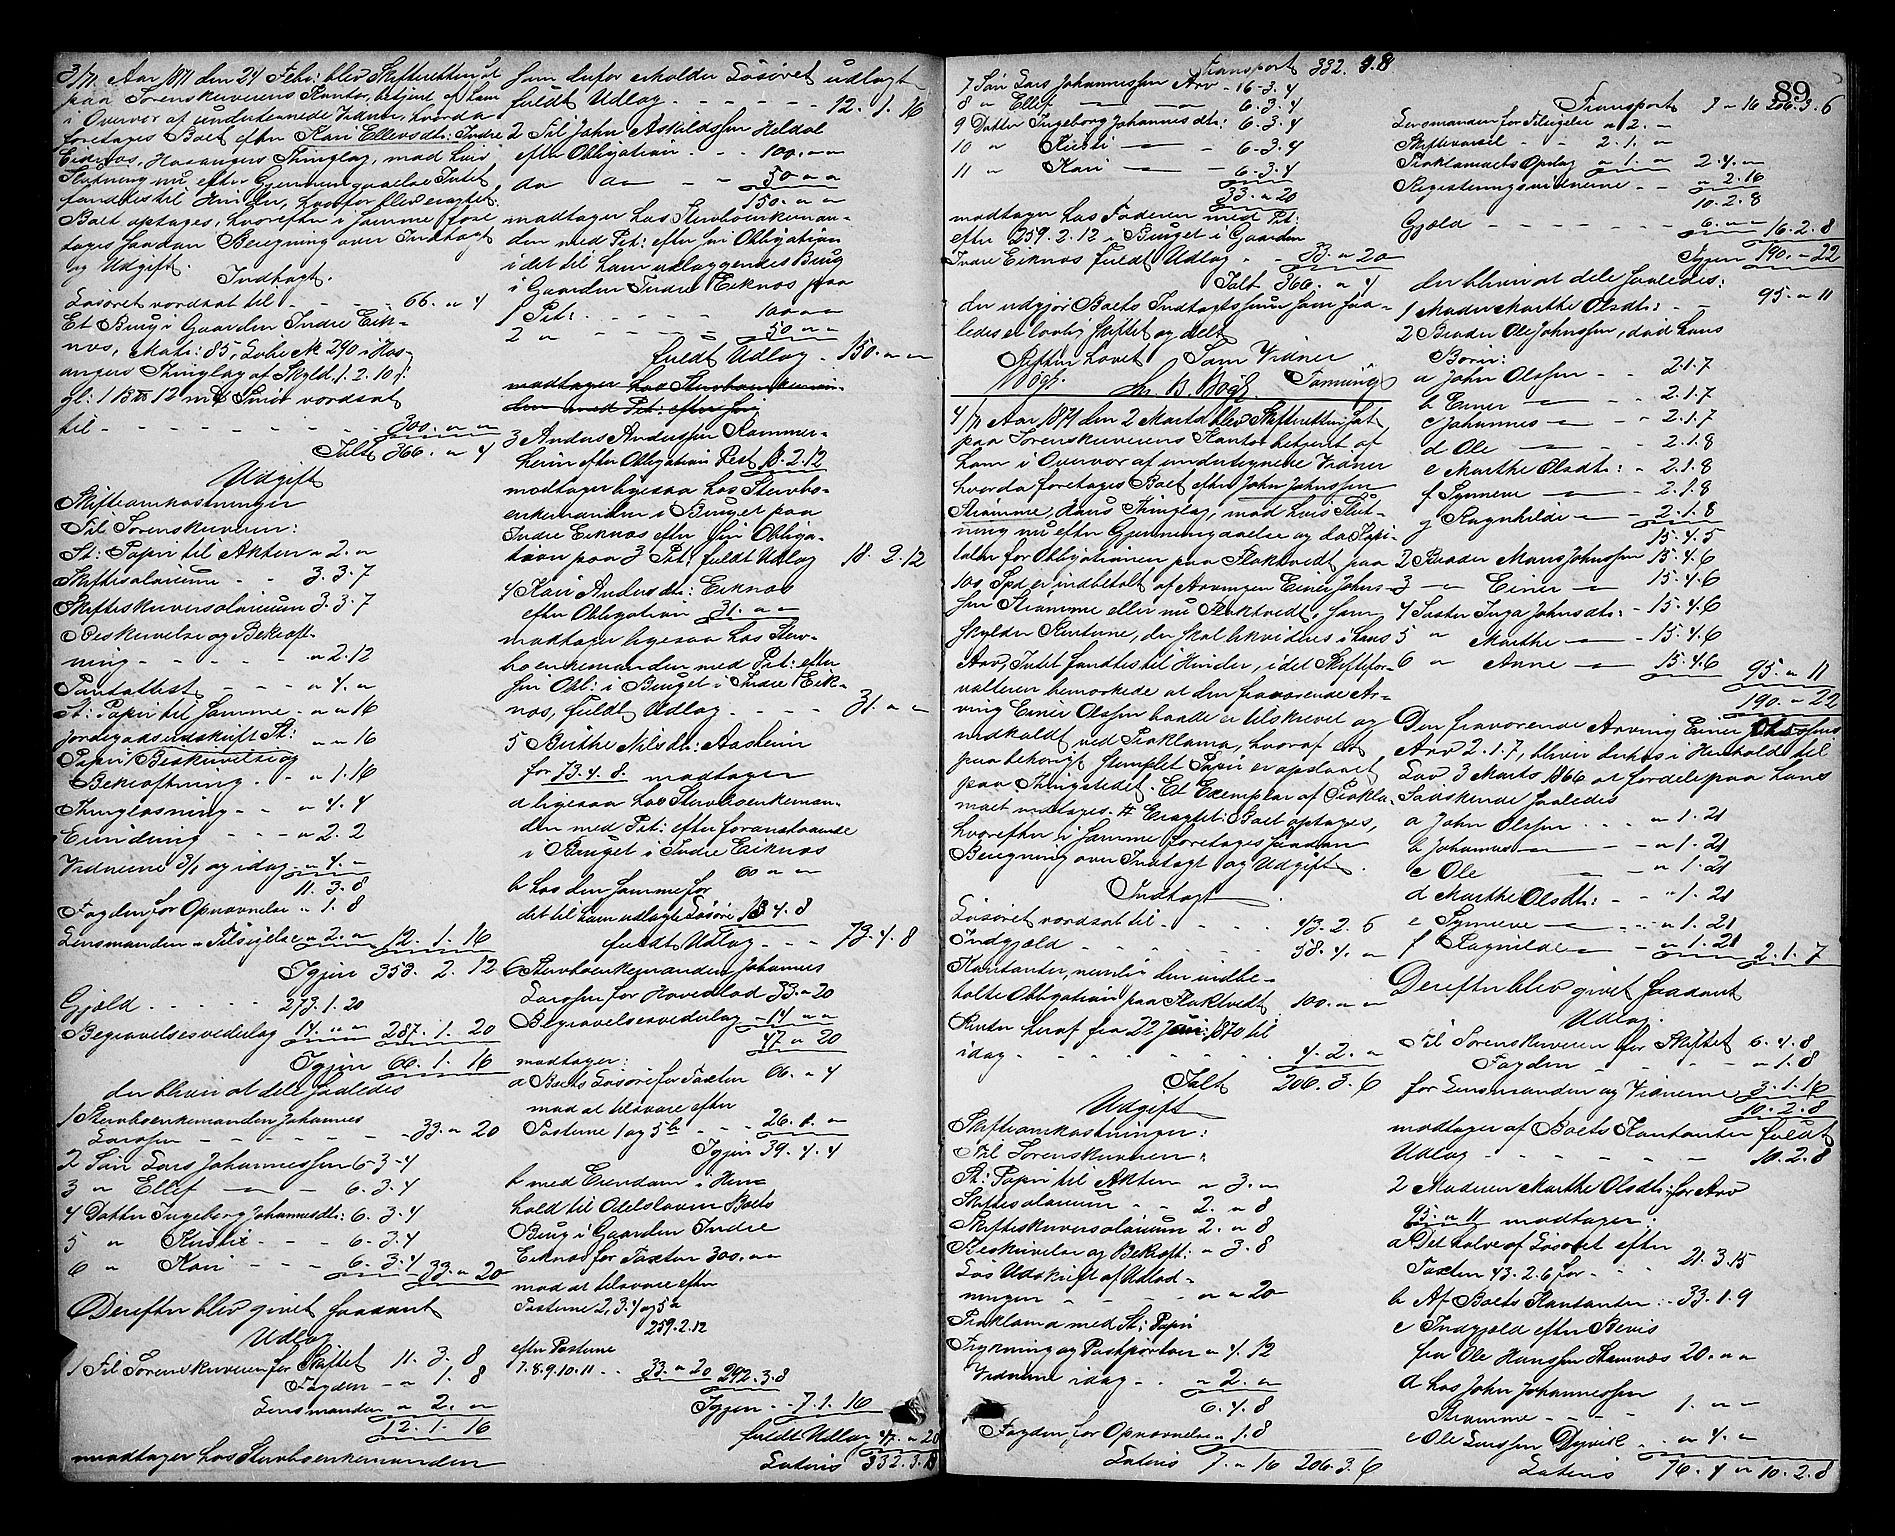 3/71 Aar 1871 den 24 Febr: blev Skifteretten sat
paa Sorenskriverens Kontor, betjent af ham
i Overvær af undertegnede Vidner, hvorda
foretoges Boet efter Kari Ellevsdtr: Indre
Eiknæs, Hosangers Thinglag, med hvis
Slutning nu efter Gjennemgaaelse Intet
fandtes til Hinder, hvorfor blev eragtet:
Boet optages, hvorefter i samme fore
tages saadan Beregning over Indtægt
og Udgift.
Indtægt.
Løsøret vordsat til - - - - 66. " 4
Et Brug i Gaarden Indre Eik-
næs, Matr: 85, Løbe No 290 i Hos-
angers Thinglag af Skyld 1. 2. 10 s:
gl: 1 12 m Smør vordsat
til - - - - - - - - 300. " "
Ialt 366. " 4
Udgift
Skifteomkostninger
Til Sorenskriveren:
St: Papir til Akten " 2. "
Skiftesalarium - - 3. 3. 7
Skifteskriversalarium 3. 3. 7
Beskrivelse og Bekræft-
ning - - - - - " 2. 12
Pantattest - - - " 4. "
St: Papir til samme - " " 16
jordegodsudskrift St:
Papir " " 16
Beskrivelse og
Bekræftning - - " 1. 16
Thinglæsning - - " 4. 4
Grunding - - - " 2. 2
Vidnerne 3/1 og idag - " 4. "
11. 3. 8
Fogden for Opnævnelse " 1. 8
Lensmanden " Tilsigelse " 2. " 12. 1. 16
Igjen 353. 2. 12
Gjæld - - - - 273. 1. 20
Begravelsesvederlag 14. " " 287. 1. 20
Igjen 66. 1. 16
der bliver at dele saaledes
1 Stervboenkemanden Johannes
Larssen - - - - - - - 33. " 20
2 Søn Lars Johannessen 6. 3. 4
3 " Ellef — " — 6. 3. 4
4 Datter Ingeborg Johannesdtr: 6. 3. 4
5 " Kristi - - - 6. 3. 4
6 " Kari - - - 6. 3. 4 33. " 20
Derefter blev givet saadant
Udlæg
1 Til Sorenskriveren for Skiftet 11. 3. 8
Fogden - " 1. 8
Lensmanden " 2. "
12. 1. 16
modtager hos Stervboenkemanden
som derfor erholder Løsøret udlagt
fuldt Udlæg - - - - - - 12. 1. 16
2 Til John Askildssen Heldal
efter Obligation - - 100. " "
do do - - 50 " "
150. " "
modtager hos Stervboenkeman-
den med Prt: efter sin Obligation
i det til ham udlæggendes Brug
i Gaarden Indre Eiknæs paa
1 Prt: - - - - 100 " "
2 " - - - - 50 " "
fuldt Udlæg - 150. " "
modtager hos Stervboenkeman-
den med Prt: efter sin
3 Anders Anderssen Rammer-
herin efter Obligation Rest 18. 2. 12
modtager ligesaa hos Stervbo-
enkemanden i Bruget paa
Indre Eiknæs efter sin Obliga-
tion paa 3 Prt: fuldt Udlæg 18. 2. 12
4 Kari Andersdtr: Eiknæs
efter Obligation 31. " "
modtager ligesaa hos Sterv-
boenkemanden med Prt: efter
sin Obl: i Bruget i Indre Eik-
næs, fuldt Udlæg - - - - 31. " "
5 Brithe Nilsdtr: Aasheim
for 73. 4. 8. modtager
a ligesaa hos Stervboenkeman-
den med Prt: efter foranstaaende
i Bruget i Indre Eiknæs
60 " "
b hos den samme for
det til ham udlagte Løsøre 13. 4. 8
fuldt Udlæg - - - 73. 4. 8
6 Stervboenkemanden Johannes
Larssen for Hovedlod 33. " 20
Begravelsesvederlag - 14 " "
47. " 20
modtager:
a Boets Løsøre for Taxten 66. " 4
mod at tilsvare efter
Posterne 1 og 5 b - - - 26. 1. "
Igjen 39. 4. 4
b med Eiendom i Hen-
hold til Odelsloven Boets
Brug i Gaarden Indre
Eiknæs for Taxten 300. " "
mod at tilsvare efter
Posterne 2, 3. 4 og 5 a
259. 2. 12
efter Posterne
7. 8. 9. 10. 11 - - 33. " 20 292. 3. 8
Igjen - - 7. 1. 16
fuldt Udlæg 47. " 20
Lateris 332. 3. 8
Transport 332. 3. 8
7 Søn Lars Johannessen Arv - 6. 3. 4
8 " Ellef — — 6. 3. 4
9 Datter Ingeborg Johannesdtr: 6. 3. 4
10 " Kristi — — 6. 3. 4
11 " Kari — — 6. 3. 4
33. " 20
modtager hos Faderen med Prt:
efter 259. 2. 12 i Bruget i Gaarden
Indre Eiknæs fuldt Udlæg - - 33. " 20
Ialt 366. " 4
der udgjør Boets Indtægtssum som saa-
ledes er lovlig skiftet og delt
Skiftet hævet Som Vidner
4/71 Aar 1871 den 2 Marts blev Skifteretten sat
paa Sorenskriverens Kontor betjent af
ham i Overvær af undertegnede Vidner
hvorda foretoges Boet efter John Johnssen
Stramme, Haus Thinglag, med hvis Slut-
ning nu efter Gjennemgaaelse og da Kapi-
talen for Obligationen paa Stoktvedt paa
100 Spd er indbetalt af Arvingen Einer Johns-
sen Stramme eller nu Stoktvedt, som
skylder Renterne, der skal likvideres i hans
Arv, Intet fandtes til Hinder, idet Skiftefor-
valteren bemærkede at den fraværende Ar-
ving Einer Olssen baade er tilskrevet og
indkaldt ved Proklama, hvoraf et
paa behørigt stemplet Papir er opslaaet
paa Thingstedet. Et Exemplar af Prokla-
maet modtages. Eragtet: Boet optages,
hvorefter i samme foretages saadan
Beregning over Indtægt og Udgift.
Indtægt
Løsøret vordsat til - - - - 43. 2. 6
Indgjæld - - - - - - 58. 4. "
Kontanter, nemlig den indbe-
talte Obligation paa Stoktvedt 100. " "
Renter heraf fra 22 Juni 1870 til
idag - - - - - - - - 4. 2. "
Ialt 206. 3. 6
Udgift
Skifteomkostninger:
Til Sorenskriveren:
St: Papir til Akten " 3. "
Skiftesalarium - - 2. " 8
Skifteskriversalarium 2. " 8
Beskrivelse og Bekræft: " 3. 8
Løs Udskrift af Udlod-
ningen - - - - " " 20
Proklama med St: Papir
Trykning og Postportoer " 4. 12
Vidnerne idag - - " 2. "
6. 4. 8
Fogden for Opnævnelse " 1. 8
Lateris 7. " 16 206. 3. 6
89
Transport 7 " 16 206. 3. 6
Lensmanden for Tilsigelse " 2. "
Skiftevarsel - - 2. 1. "
Proklamaets Opslag " 1. " 2. 4. "
Registeringsvidnerne - - " 2. 16
10. 2. 8
Gjæld - - - - - - - 6. " " 16. 2. 8
Igjen 190. " 22
der bliver at dele saaledes:
1 Moder Marthe Olsdtr: - 95. " 11
2 Broder Ole Johnssen, død hans
Børn:
a John Olssen - - 2. 1. 7
b Einer — — - 2. 1. 7
c Johannes — - 2. 1. 7
d Ole — - 2. 1. 8
e Marthe Olsdtr: - 2. 1. 8
f Synneve — - 2. 1. 8
g Ragnhilde — - 2. 1. 8
15. 4. 5
2 Broder Mons Johnssen 15. 4. 6
3 — Einer — 15. 4. 6
4 Søster Inga Johnsdtr: - 15. 4. 6
5 " Marthe — - 15. 4. 6
6 " Anne — 15. 4. 6 95. " 11
190. " 22
Den fraværende Arving Einer Olssens
Arv 2. 1. 7, bliver derhos i Henhold til
Lov 3 Marts 1866 at fordele paa hans
Sødskende saaledes
a John Olssen - - - " 1. 21
b Johannes — - - " 1. 21
c Ole — - " 1. 21
d Marthe Olsdtr: - - " 1. 21
e Synneve — - - " 1. 21
f Ragnilde — - " 1. 21 2. 1. 7
Derefter blev givet saadant
Udlæg.
Til Sorenskriveren for Skiftet 6. 4. 8
Fogden - - - - - " 1. 8
for Lensmanden og Vidnerne 3. 1. 16
10. 2. 8
modtager af Boets Kontanter fuldt
Udlæg - - - - - - - 10. 2. 8
2 Moderen Marthe Olsdtr: for Arv
95. " 11 modtager:
a Det halve af Løsøret efter
Taxten 43. 2. 6 for - - - 21. 3. 15
b Af Boets Kontanter: - 33. 1. 9
c Indgjæld efter Bevis
fra Ole Hanssen Stamnæs 20. " "
d hos John Johannessen
Stramme - - - - 1. " "
e Ole Larssen Dyvik - " 4. "
Lateris 76. 4 " 10. 2. 8